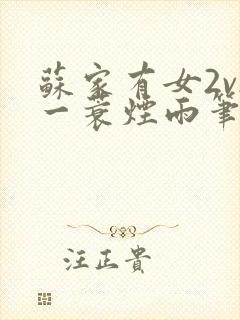 蘇家有女2v
一蓑煙雨筆
汪正貴